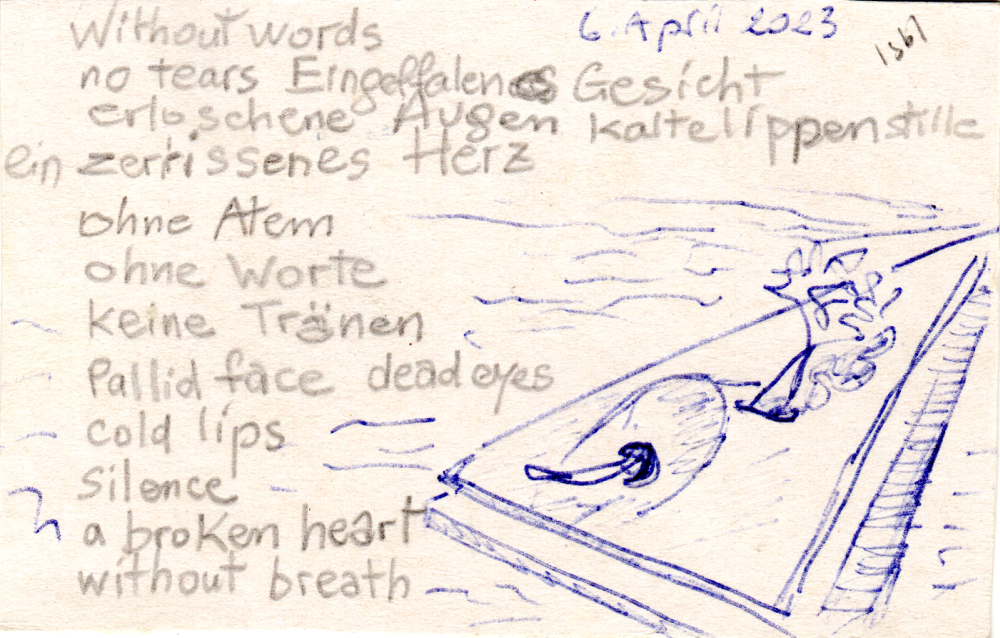 without words
6. April 2023
1961
no tears Eingeffalenes Gesicht
erloschene Augen kaltelippenstille
ein zerrissenes Herz
ohne Atem
ohne Worte
keine Tränen
Pallid face dead eyes
cold lips
Silence
a broken heart
without breath